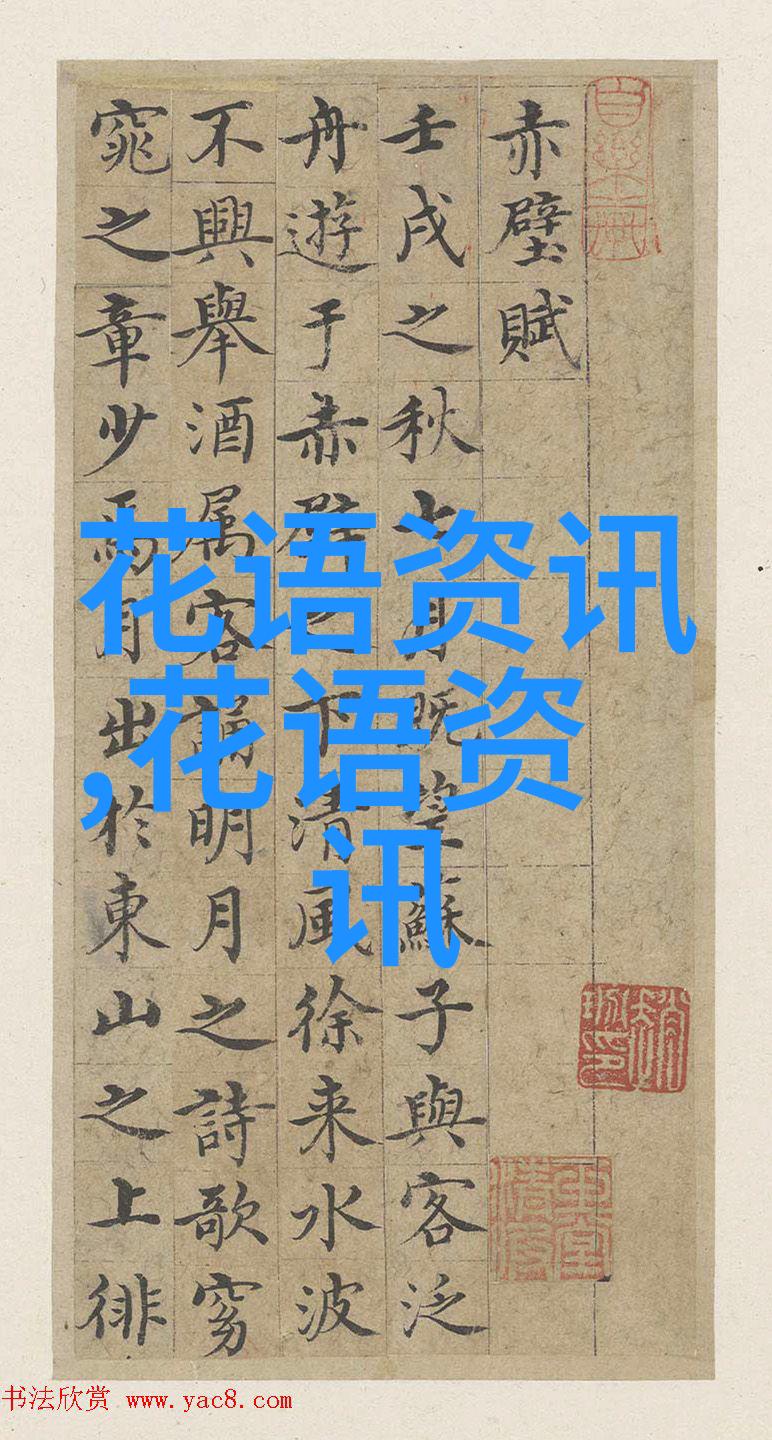 赤壁賦
壬戌之秋七月既望蘇子與客泛
舟遊于赤壁之下清風徐来水波
不興舉酒属客誦明月之詩歌窈
窕之章少焉月出於東山之上徘
花语资讯
,花语资
讯
书法欣赏 www.yac8.com